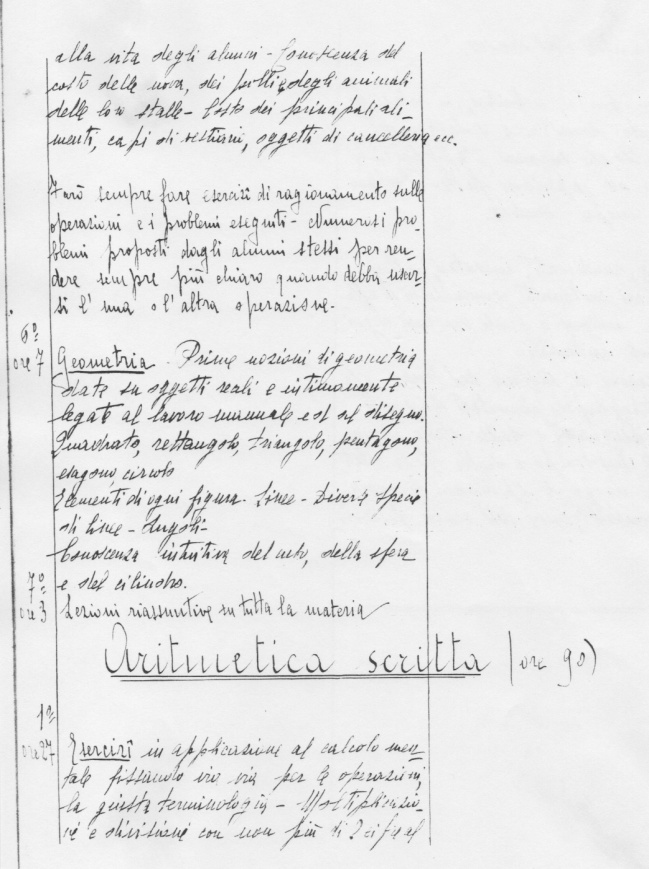 alla vita degli alunni - Conoscenza del
costo delle uova, dei polli e degli animali
delle loro stalle - Costo dei principali ali-
menti, capi di vestiario, oggetti di cancelleria ecc.
Farò sempre fare esercizî di ragionamento sulle
operazioni e i problemi eseguiti - Numerosi pro-
blemi proposti dagli alunni stessi per ren-
dere sempre più chiaro quando debba usar-
si l'una o l'altra operazione.
6º
ore 7
Geometria. Prime nozioni di geometria
date su oggetti reali e intimamente
legate al lavoro manuale ed al disegno.
Quadrato, rettangolo, triangolo, pentagono,
esagono, circolo
Elementi di ogni figura. Linee - Diverse specie
di linee - Angoli -
Conoscenza intuitiva del cubo, della sfera
e del cilindro.
7º
ore 3
Lezioni riassuntive su tutta la materia
Aritmetica scritta (ore 90)
1º
ore 27
Esercizî in applicazione al calcolo men-
tale fissando via via per le operazioni,
la giusta terminologia - Moltiplicazio-
ne e divisione con non più di 2 cifre al